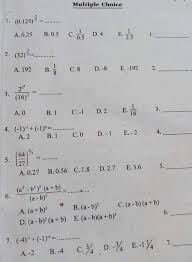 Multiple Choice
1. (0.125)
A. 0.25 B. 0.5 C. 1/0.5 D. 4 E. 1/2.5 1.
2. (32)
A. 192 B. 1/4 C. 8 D. -8 E. -192 2.
3. (16)
A. 0 B. 1 C. -1 D. 2 E. 1/16 3.
4. (-1)⁻¹ + (-1)⁰ =
A. 2 B. 1 C. 0 D. -1 E. -2 4.
5. [64/27]
A. 0.27 B. 0.56 C. 1.8 D. 2.7 E. 3.6 5.
6. (a² - b²)² (a + b)
(a - b)²
A. (a + b)³ B. (a - b)² C. (a - b) (a + b)
D. (a - b)² (a + b) E. (a - b)(a + b)² 6.
7. (-4)⁻¹ + (-1)
A. -2 B. -4 C. 3/4 D. -3/4 E. -1 1/4 7.